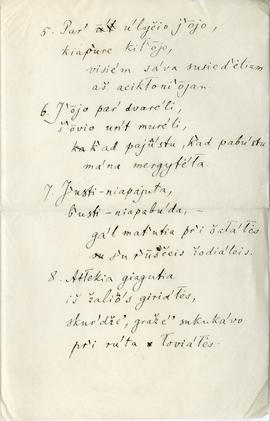 5. Par ulyčio jojo,
kiapure kilojo,
visiém sáva susiedéliam
aš aciktoničojan.
6. Jójo par dvaréli,
šóvio unt muréli,
kad pajūstu, kad pabústu
mána mergytéla
7. Justi-niapajuta,
busti-niapabúda,-
gál matutia pri šaláтės
su rūščeis žodiáleis.
8. Atlekia giagutia
iš žaliós giriátės,
skurdžė, gražé sukukávo
pri rúta loviátės.